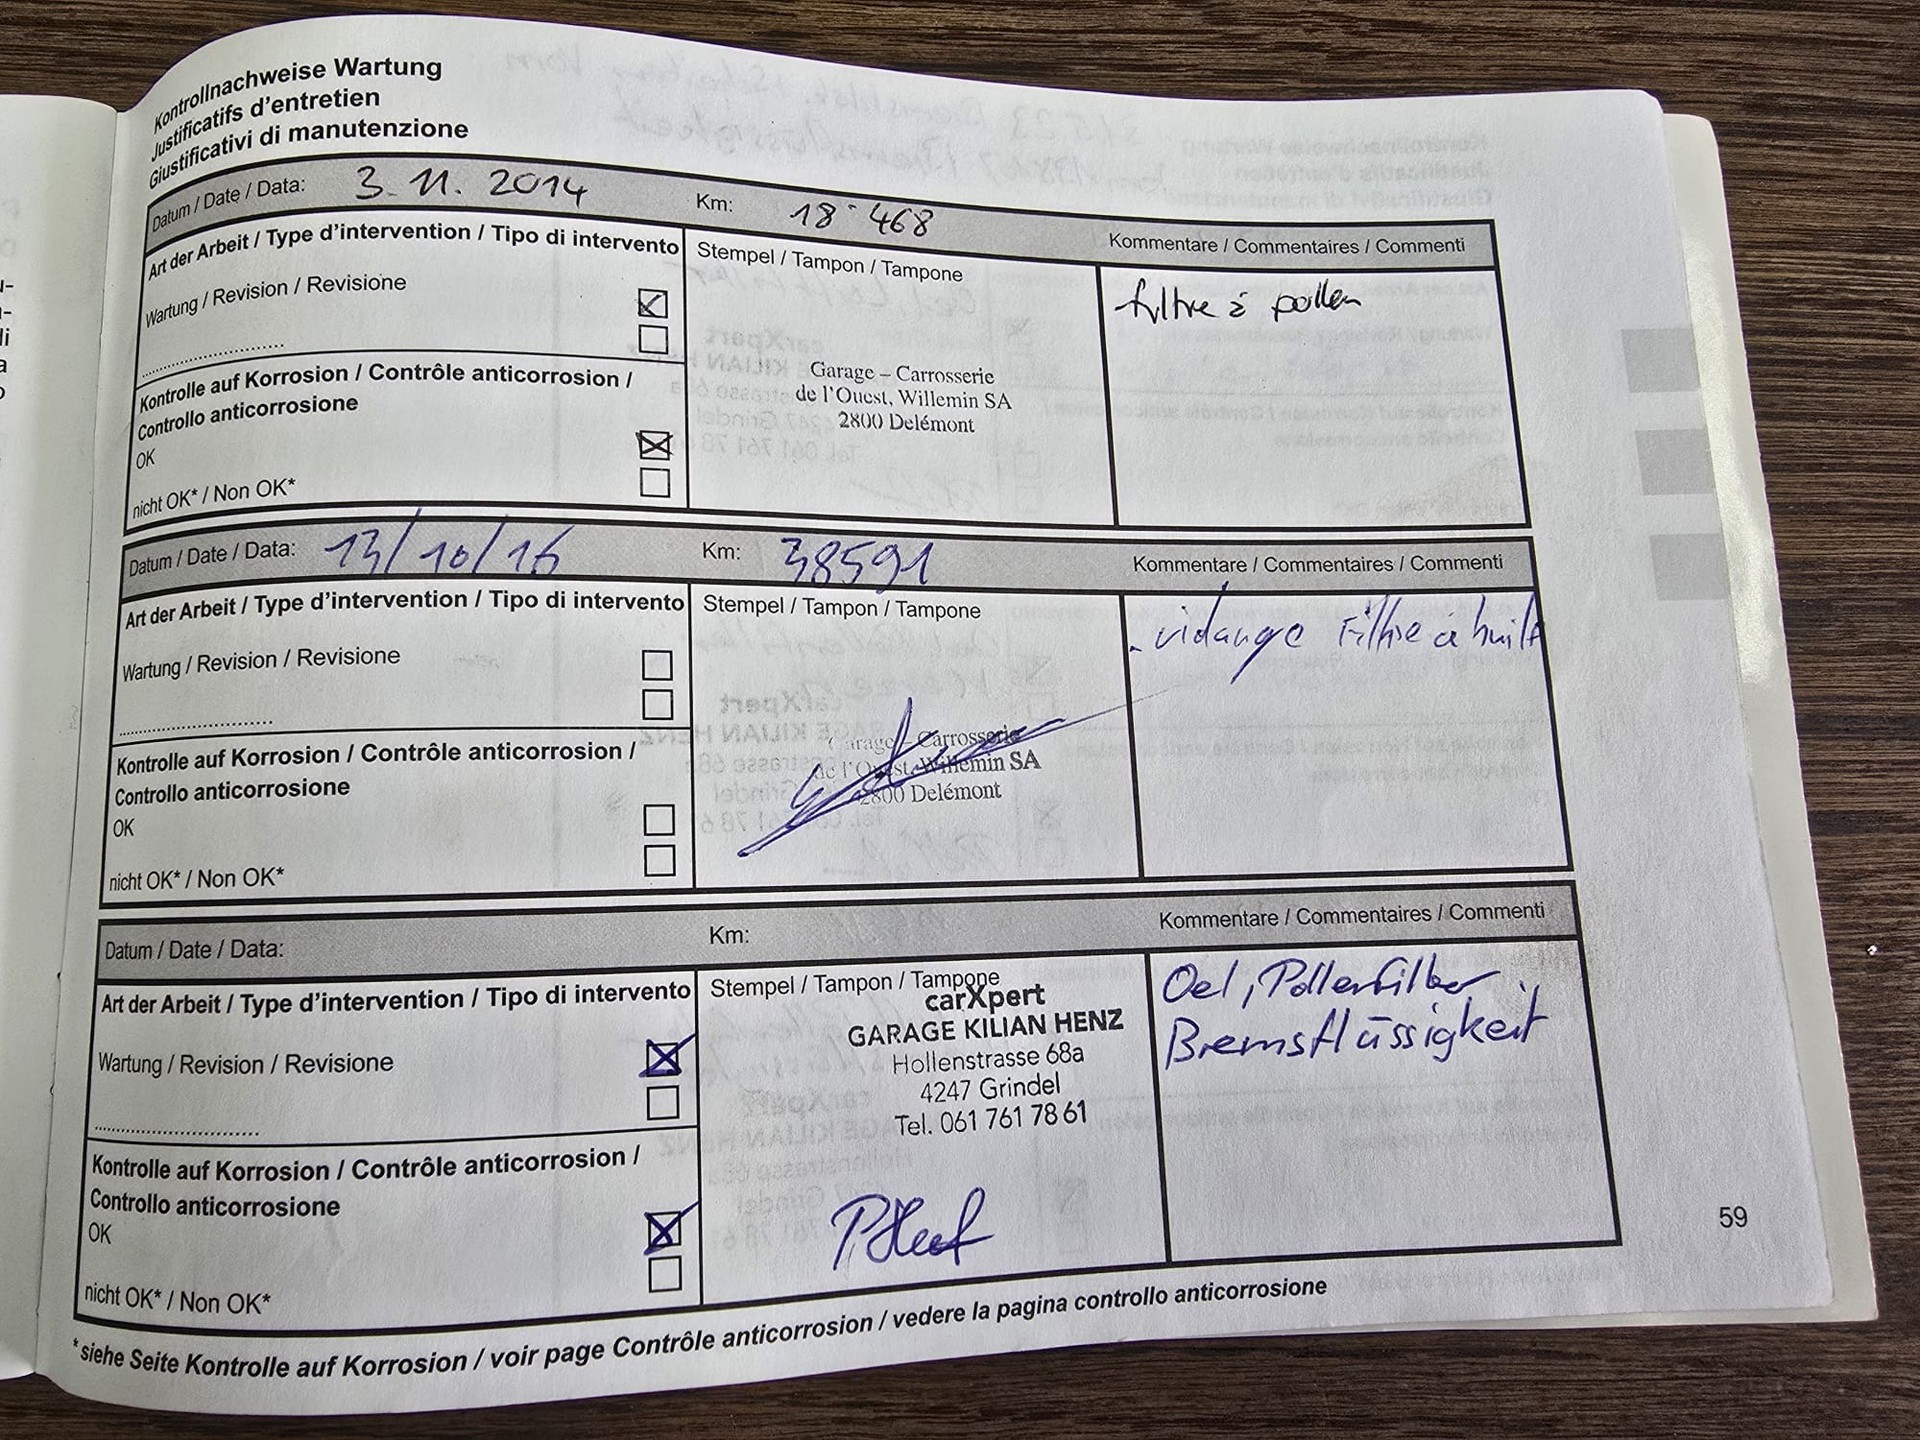 Kontrollnachweise Wartung
Justificatifs d'entretien
Giustificativi di manutenzione
Datum / Date / Data: 3. 11. 2014 Km: 18'468 Kommentare / Commentaires / Commenti
Art der Arbeit / Type d'intervention / Tipo di intervento
Stempel / Tampon / Tampone
filtre à pollen
Wartung / Revision / Revisione
Garage – Carrosserie
de l'Ouest, Willemin SA
2800 Delémont
Kontrolle auf Korrosion / Contrôle anticorrosion /
Controllo anticorrosione
OK
nicht OK* / Non OK*
Datum / Date / Data: 13/10/16 Km: 38591 Kommentare / Commentaires / Commenti
Art der Arbeit / Type d'intervention / Tipo di intervento
Stempel / Tampon / Tampone
- vidange Filtre à huile
Wartung / Revision / Revisione
Garage – Carrosserie
de l'Ouest, Willemin SA
2800 Delémont
Kontrolle auf Korrosion / Contrôle anticorrosion /
Controllo anticorrosione
OK
nicht OK* / Non OK*
Datum / Date / Data: Km: Kommentare / Commentaires / Commenti
Art der Arbeit / Type d'intervention / Tipo di intervento
Stempel / Tampon / Tampone
carXpert
GARAGE KILIAN HENZ
Hollenstrasse 68a
4247 Grindel
Tel. 061 761 78 61
Oel, Pollenfilter
Bremsflüssigkeit
Wartung / Revision / Revisione
Kontrolle auf Korrosion / Contrôle anticorrosion /
Controllo anticorrosione
OK
nicht OK* / Non OK*
*siehe Seite Kontrolle auf Korrosion / voir page Contrôle anticorrosion / vedere la pagina controllo anticorrosione
59